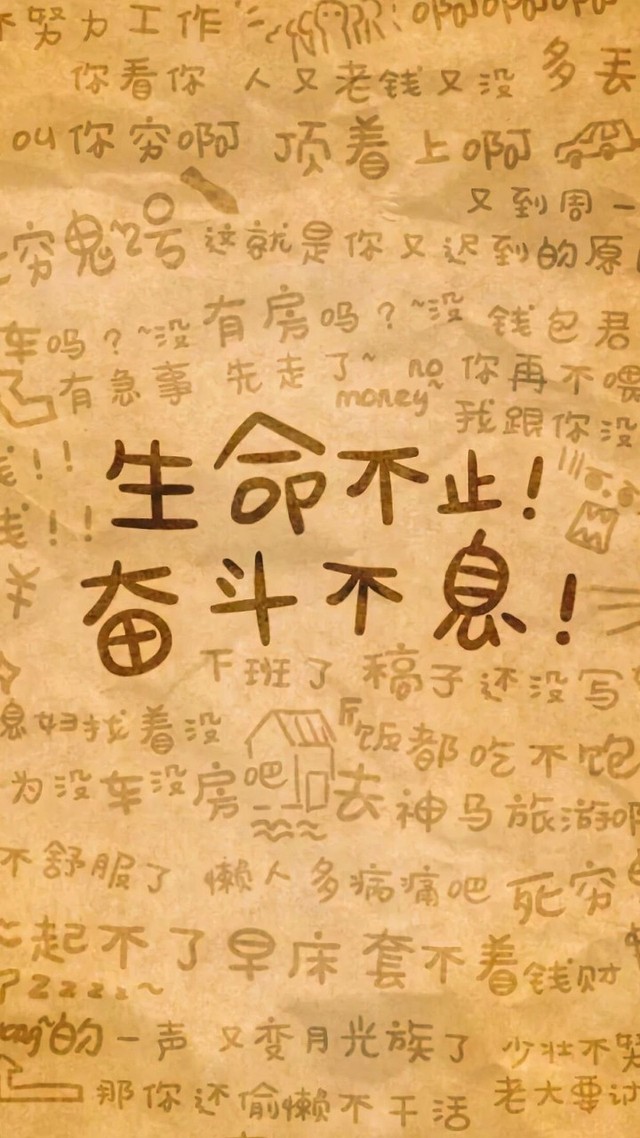 不努力工作 啊啊啊啊啊
你看你 人又老钱又没 多丢
叫你穷啊 顶着上啊
又到周一
穷鬼2号 这就是你又迟到的原
车吗？~没有房吗？~没 钱包君
有急事 先走了~ no money~ 你再不喂
我跟你没
！！
生命不止！
！！
¥
奋斗不息！
下班了 稿子还没写
息妇找着没 饭都吃不饱
为没车没房吧 去神马旅游啊
不舒服了 懒人多病痛吧 死穷
起不了早床套不着钱财
zzzz~
的一声 又变月光族了 少壮不努
那你还偷懒不干活 老大要记